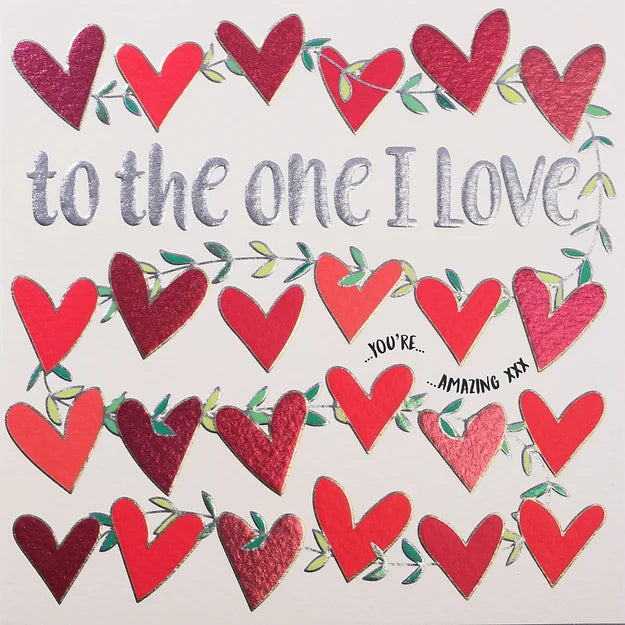 to the one I Love
...YOU'RE...
...AMAZING XXX